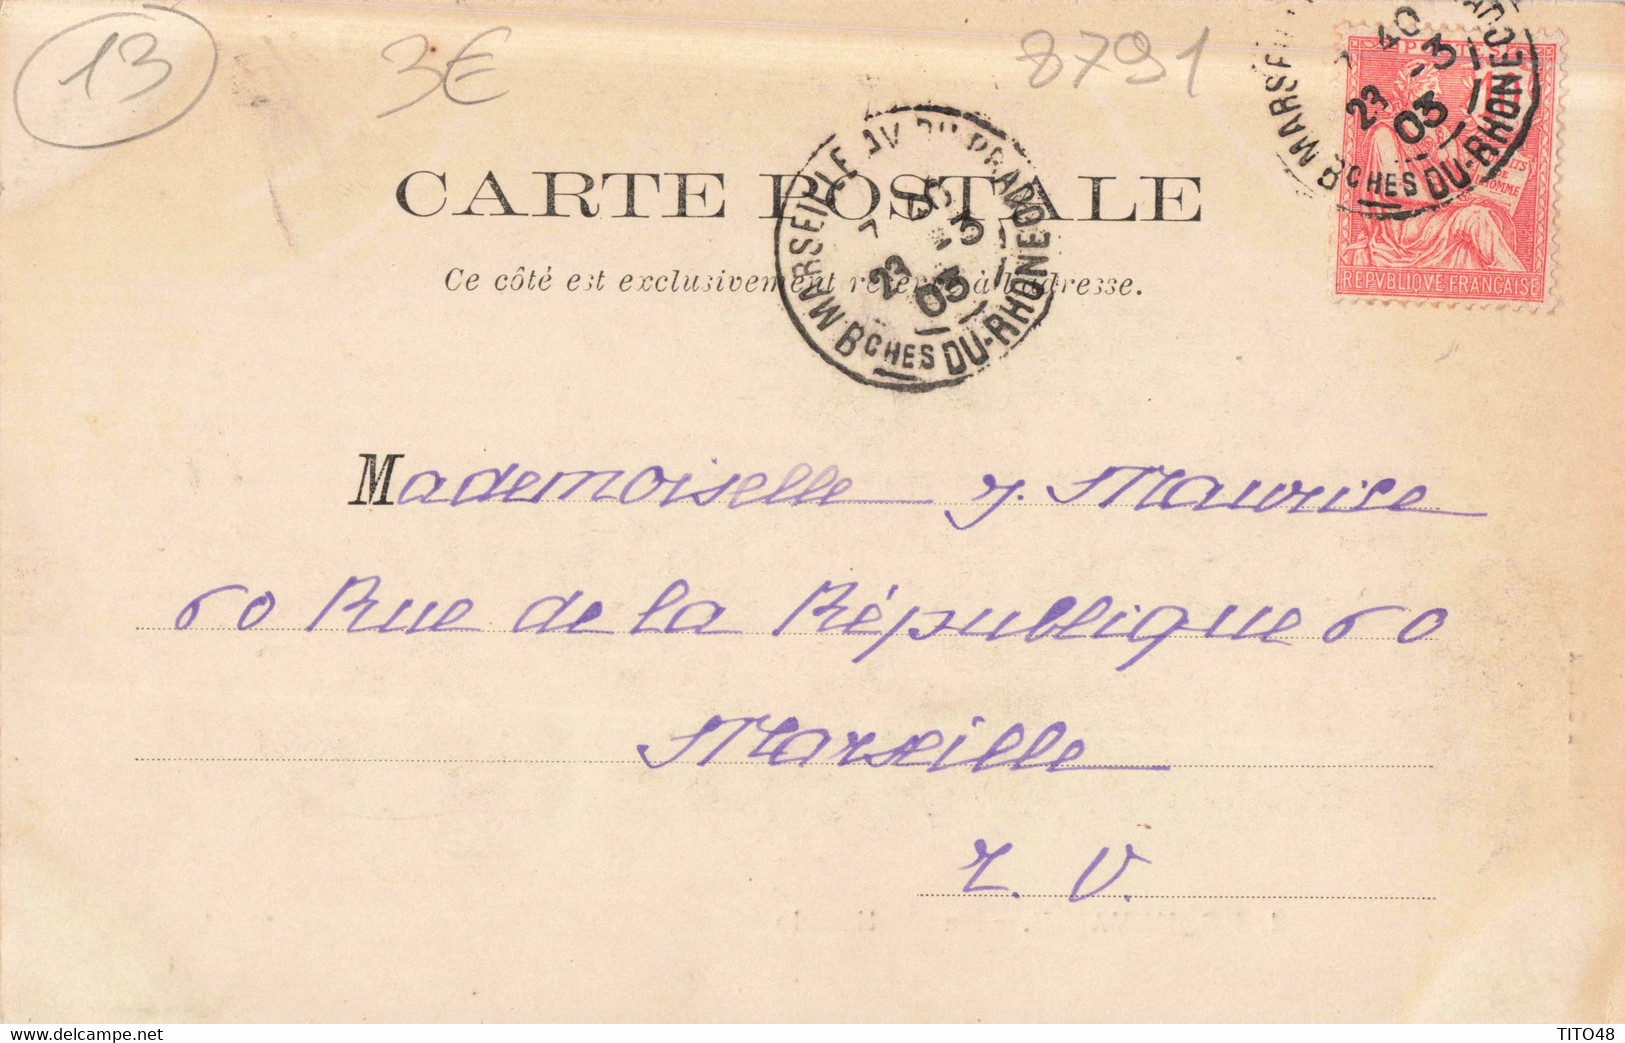 13
3€
8791
CARTE POSTALE
Ce côté est exclusivement réservé à l'adresse.
MARSEILLE AV. DU PRADO
7 40
23 -3
03
BCHES DU-RHONE
POSTES
7 40
23 -3
03
BCHES DU-RHONE
REPVBLIQVE FRANÇAISE
Mademoiselle Y. Maurice
60 Rue de la République 60
Marseille
E. V.
TITO48